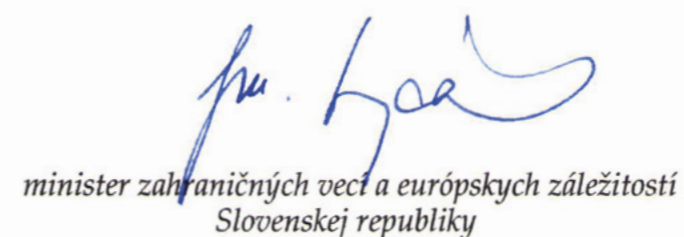 minister zahraničných vecí a európskych záležitostí
Slovenskej republiky